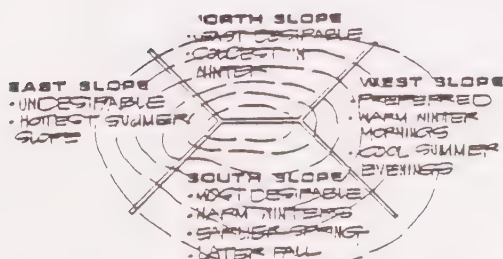 NORTH SLOPE
• LEAST DESIRABLE
• COLDEST IN
WINTER
EAST SLOPE
• UNDESIRABLE
• HOTTEST SUMMER
SLOPE
WEST SLOPE
• PREFERRED
• WARM WINTER
MORNINGS
• COOL SUMMER
EVENINGS
SOUTH SLOPE
• MOST DESIRABLE
• WARM WINTERS
• EARLIER SPRING
• LATER FALL